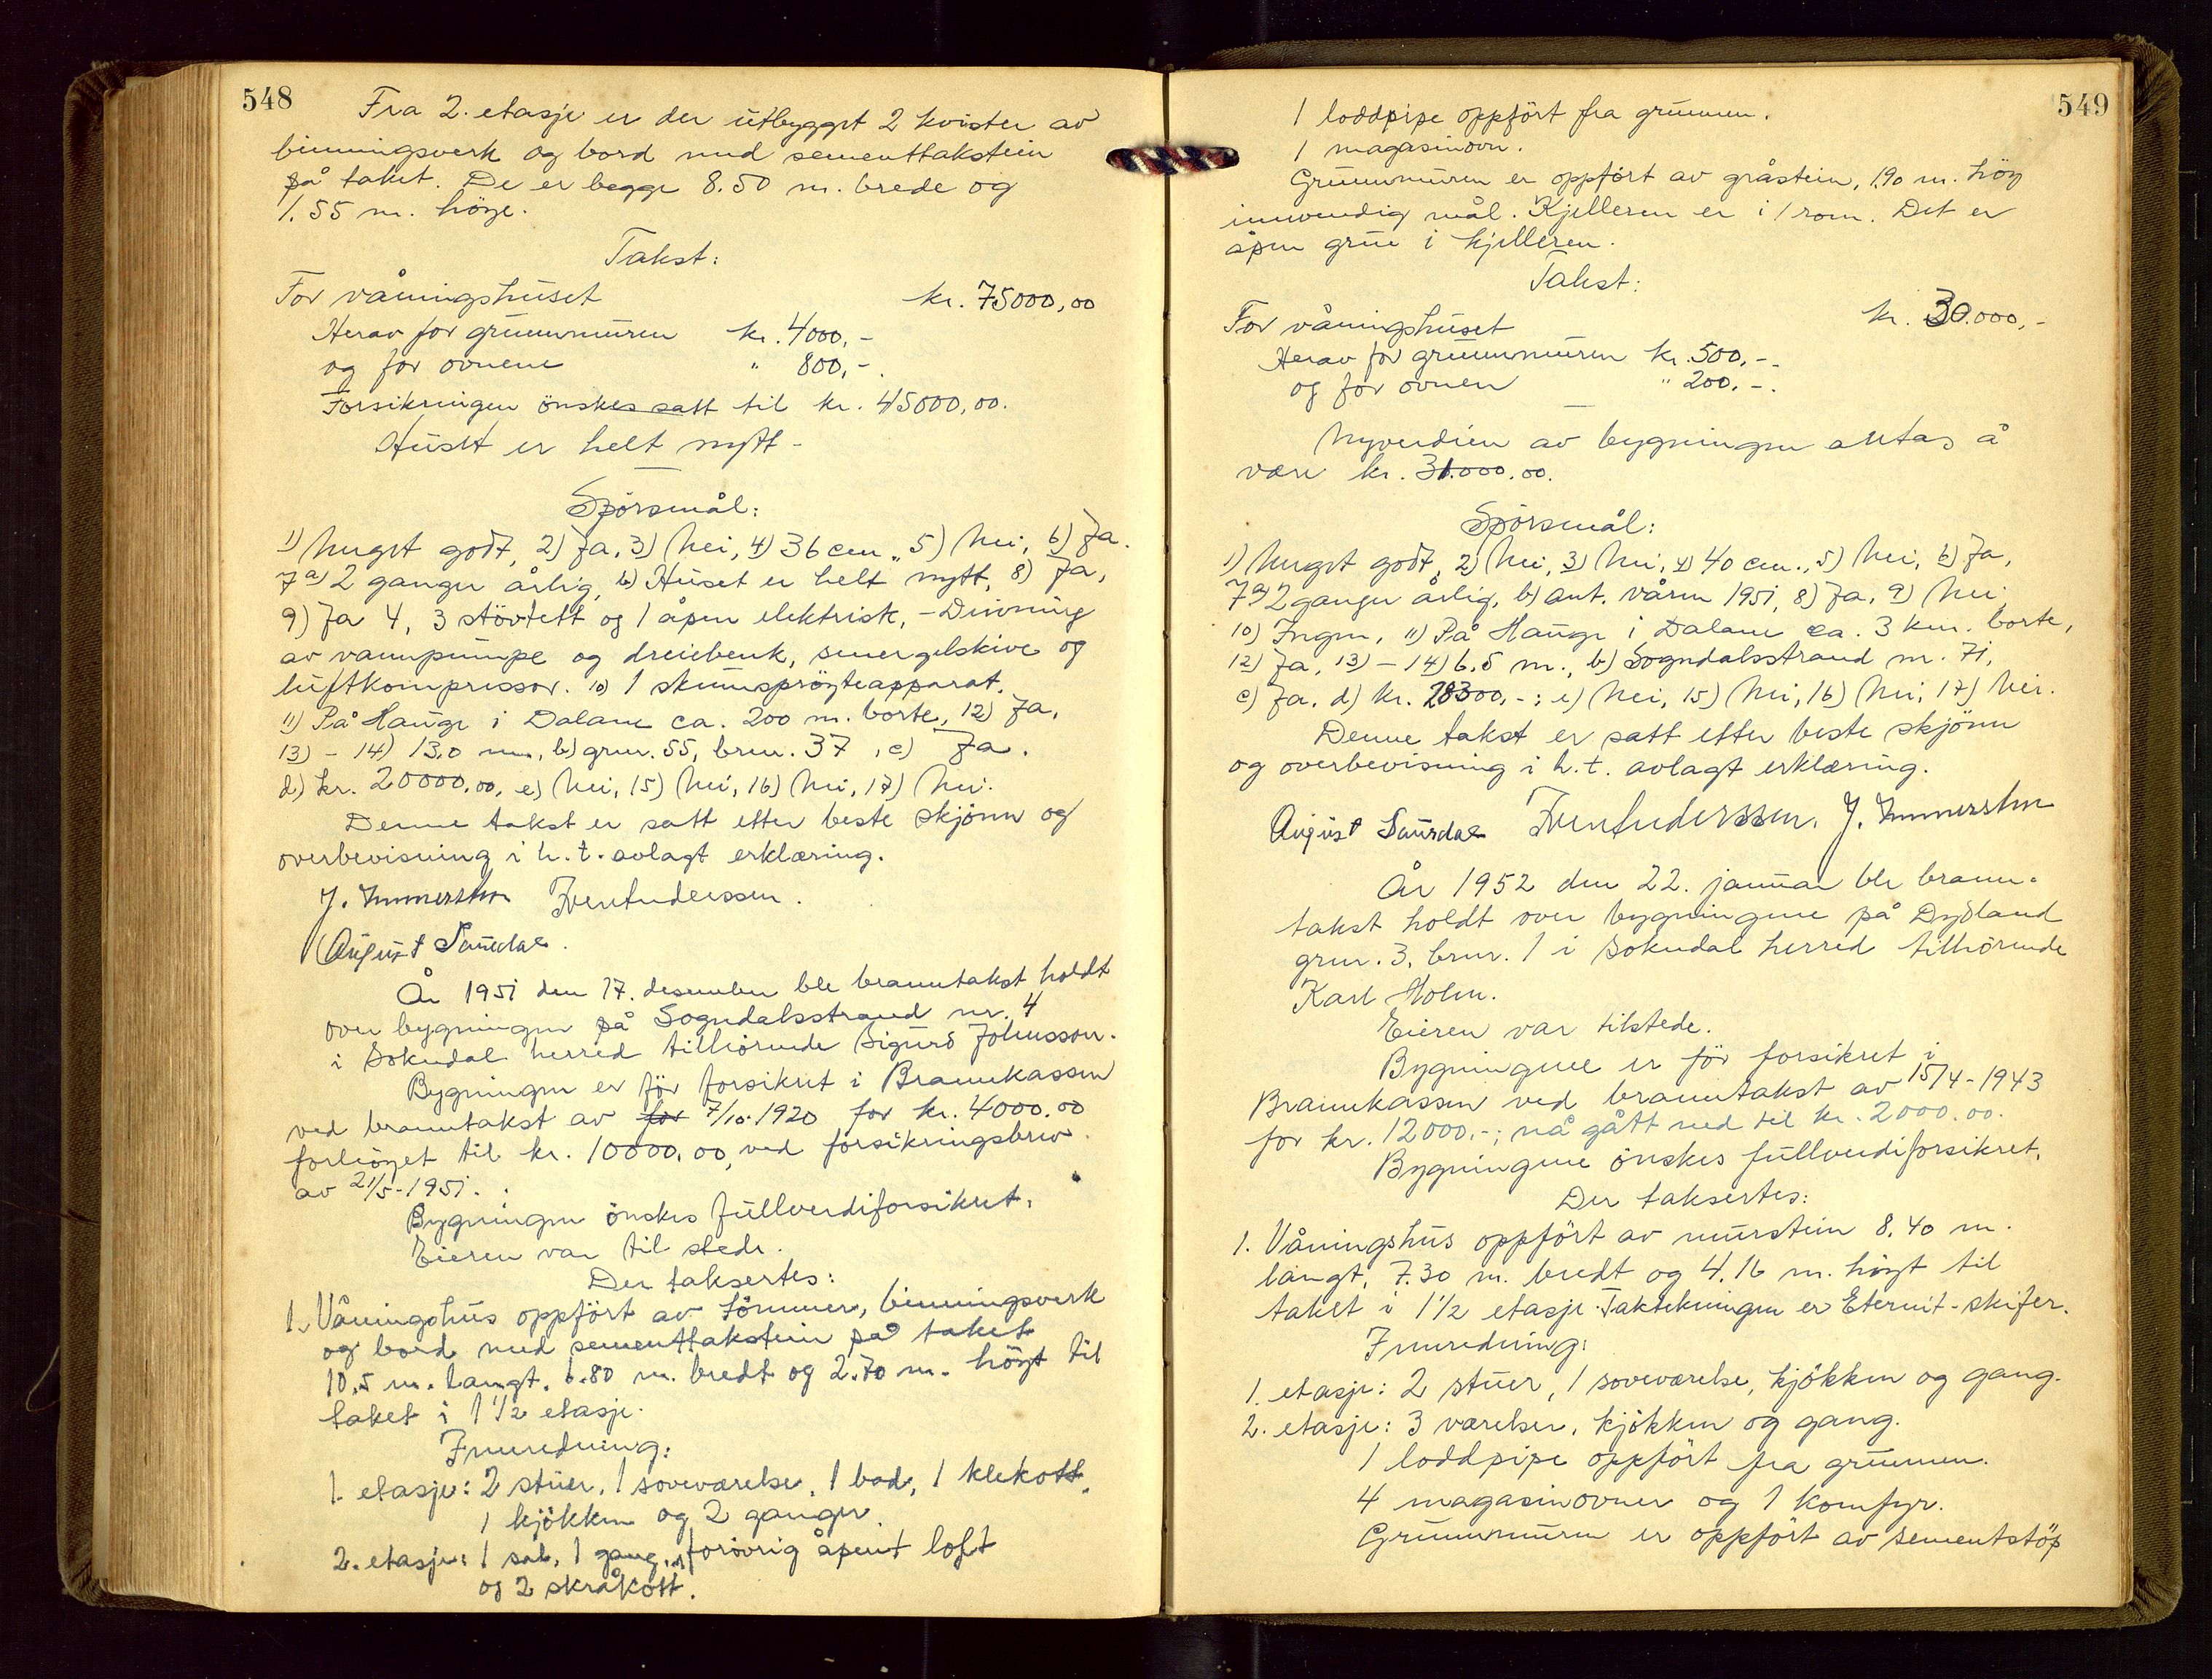 548
Fra 2. etasje er der utbygget 2 kvister av
binningsverk og bord med sementtakstein
på taket. De er begge 8.50 m. brede og
1.55 m. höye.
Takst:
For våningshuset kr. 75000,00
Herav for grunnmuren kr. 4000,-
og for ovnene " 800,-.
Forsikringen önskes satt til kr. 45000,00.
Huset er helt nytt -
Spörsmål:
1) Meget godt, 2) Ja, 3) Nei, 4) 36 cm., 5) Nei, 6) Ja.
7 a) 2 ganger årlig, b) Huset er helt nytt, 8) Ja,
9) Ja 4, 3 stövtett og 1 åpen elektrisk, - Drivning
av vannpumpe og dreiebenk, smergelskive og
luftkompressor. 10) 1 skumspröyteapparat.
11) På Hauge i Dalane ca. 200 m. borte, 12) Ja,
13) - 14) 13,0 m., b) gnr. 55, brnr. 37, c) Ja.
d) kr. 20000,00, e) Nei, 15) Nei, 16) Nei, 17) Nei.
Denne takst er satt etter beste skjönn og
overbevisning i h.t. avlagt erklæring.
J. Immerstein
August Saurdal.
År 1951 den 17. desember ble branntakst holdt
over bygningen på Sogndalsstrand nr. 4
i Sokndal herred tilhörende Sigurd Johnsson.
Bygningen er för forsikret i Brannkassen
ved branntakst av for 7/10.1920 for kr. 4000.00
forhöyet til kr. 10000.00, ved forsikringsbrev
av 21/5-1951.
Bygningen önskes fullverdiforsikret.
Eieren var til stede.
Der taksertes:
1. Våningshus oppfört av tömmer, binningsverk
og bord med sementtakstein på taket
10,5 m. langt. 6.80 m. bredt og 2.70 m. höyt til
taket i 1 1/2 etasje.
Innredning:
1. etasje: 2 stuer, 1 soveværelse, 1 bad, 1 klekott,
1 kjökken og 2 ganger.
2. etasje: 1 sal, 1 gang, forövrig åpent loft
og 2 skråkott.
549
1 loddpipe oppfört fra grunnen.
1 magasinovn.
Grunnmuren er oppfört av gråstein, 1.90 m. höy
innvendig mål. Kjelleren er i 1 rom. Det er
åpen grue i kjelleren.
Takst:
For våningshuset kr. 30.000,-
Herav for grunnmuren kr. 500,-.
og for ovnen " 200,-.
Nyverdien av bygningen antas å
være kr. 31.000.00.
Spörsmål:
1) Meget godt, 2) Nei, 3) Nei, 4) 40 cm., 5) Nei, 6) Ja,
7 a) 2 ganger årlig, b) ant. våren 1951, 8) Ja, 9) Nei,
10) Ingen, 11) På Hauge i Dalane ca. 3 km. borte,
12) Ja, 13) - 14) 6,5 m., b) Sogndalsstrand nr. 71,
c) Ja, d) kr. 28300,-; e) Nei, 15) Nei, 16) Nei, 17) Nei.
Denne takst er satt etter beste skjönn
og overbevisning i h.t. avlagt erklæring.
August Saurdal J. Immerstein
År 1952 den 22. januar ble brann-
takst holdt over bygningene på Dydland
gnr. 3, brnr. 1 i Sokndal herred tilhörende
Karl Holm.
Eieren var tilstede.
Bygningene er för forsikret i
Brannkassen ved branntakst av 15/4-1943
for kr. 12000,-; nå gått ned til kr. 2000.00.
Bygningene önskes fullverdiforsikret.
Der taksertes:
1. Våningshus oppfört av murstein 8.40 m.
langt, 7.30 m. bredt og 4.16 m. höyt til
taket i 1 1/2 etasje. Taktekningen er Eternit-skifer.
Innredning:
1. etasje: 2 stuer, 1 soveværelse, kjökken og gang.
2. etasje: 3 værelser, kjökken og gang.
1 loddpipe oppfört fra grunnen.
4 magasinovner og 1 komfyr.
Grunnmuren er oppfört av sementstöp